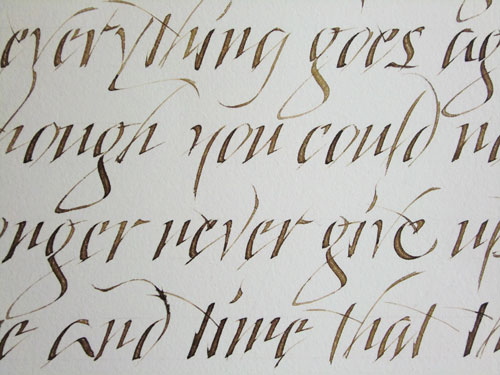 everything goes ag
hough you could n
onger never give up
e and time that th